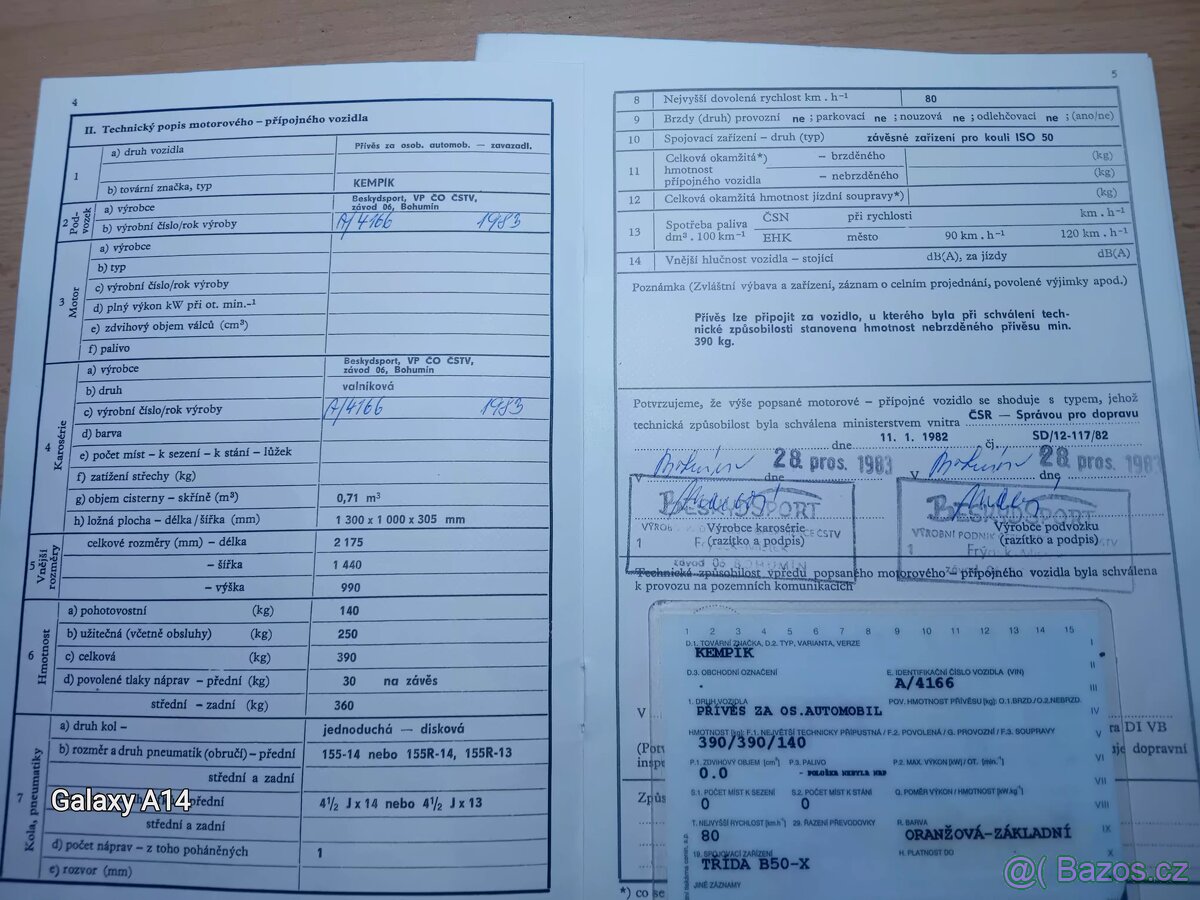 4
II. Technický popis motorového – přípojného vozidla
1
a) druh vozidla
Přívěs za osob. automob. — zavazadl.
b) tovární značka, typ
KEMPÍK
2 Pod-vozek
a) výrobce
Beskydsport, VP ČO ČSTV,
závod 06, Bohumín
b) výrobní číslo/rok výroby
A/4166 1983
3 Motor
a) výrobce
b) typ
c) výrobní číslo/rok výroby
d) plný výkon kW při ot. min.-1
e) zdvihový objem válců (cm³)
f) palivo
4 Karosérie
a) výrobce
Beskydsport, VP ČO ČSTV,
závod 06, Bohumín
b) druh
valníková
c) výrobní číslo/rok výroby
A/4166 1983
d) barva
e) počet míst – k sezení – k stání – lůžek
f) zatížení střechy (kg)
g) objem cisterny – skříně (m³)
0,71 m³
h) ložná plocha – délka/šířka (mm)
1 300 x 1 000 x 305 mm
5 Vnější rozměry
celkové rozměry (mm) – délka
2 175
– šířka
1 440
– výška
990
6 Hmotnost
a) pohotovostní (kg)
140
b) užitečná (včetně obsluhy) (kg)
250
c) celková (kg)
390
d) povolené tlaky náprav – přední (kg)
30 na závěs
střední – zadní (kg)
360
7 Kola, pneumatiky
a) druh kol –
jednoduchá — disková
b) rozměr a druh pneumatik (obručí) – přední
155-14 nebo 155R-14, 155R-13
střední a zadní
přední
4½ J x 14 nebo 4½ J x 13
střední a zadní
d) počet náprav – z toho poháněných
1
e) rozvor (mm)
Galaxy A14
5
8 Nejvyšší dovolená rychlost km . h⁻¹ 80
9 Brzdy (druh) provozní ne ; parkovací ne ; nouzová ne ; odlehčovací ne ; (ano/ne)
10 Spojovací zařízení – druh (typ) závěsné zařízení pro kouli ISO 50
11 Celková okamžitá*) hmotnost přípojného vozidla
– brzděného (kg)
– nebrzděného (kg)
12 Celková okamžitá hmotnost jízdní soupravy*) (kg)
13 Spotřeba paliva dm³ . 100 km⁻¹
ČSN při rychlosti km . h⁻¹
EHK město 90 km . h⁻¹ 120 km . h⁻¹
14 Vnější hlučnost vozidla – stojící dB(A), za jízdy dB(A)
Poznámka (Zvláštní výbava a zařízení, záznam o celním projednání, povolené výjimky apod.)
Přívěs lze připojit za vozidlo, u kterého byla při schválení tech-
nické způsobilosti stanovena hmotnost nebrzděného přívěsu min.
390 kg.
Potvrzujeme, že výše popsané motorové – přípojné vozidlo se shoduje s typem, jehož
technická způsobilost byla schválena ministerstvem vnitra ČSR — Správou pro dopravu
dne 11. 1. 1982 čj. SD/12-117/82
V Bohumín dne 28. pros. 1983
V Bohumín dne 28. pros. 1983
BESKYDSPORT
Výrobce karosérie
(razítko a podpis)
závod 06 BOHUMÍN
BESKYDSPORT
VÝROBNÍ PODNIK
Výrobce podvozku
(razítko a podpis)
Technická způsobilost vpředu popsaného motorového – přípojného vozidla byla schválena
k provozu na pozemních komunikacích
V
(Potv
inspe
Způs
ra DI VB
dopravní
*) co se
1 2 3 4 5 6 7 8 9 10 11 12 13 14 15
D.1. TOVÁRNÍ ZNAČKA, D.2. TYP, VARIANTA, VERZE
KEMPÍK
D.3. OBCHODNÍ OZNAČENÍ
.
E. IDENTIFIKAČNÍ ČÍSLO VOZIDLA (VIN)
A/4166
1. DRUH VOZIDLA
PŘÍVĚS ZA OS.AUTOMOBIL
POV. HMOTNOST PŘÍVĚSU [kg]: O.1.BRZD./O.2.NEBRZD.
HMOTNOST [kg]: F.1. NEJVĚTŠÍ TECHNICKY PŘÍPUSTNÁ / F.2. POVOLENÁ / G. PROVOZNÍ / F.3. SOUPRAVY
390/390/140
P.1. ZDVIHOVÝ OBJEM [cm³]
0.0
P.3. PALIVO
- POLOŽKA NEBYLA NAP
P.2. MAX. VÝKON [kW] / OT. [min.⁻¹]
S.1. POČET MÍST K SEZENÍ
0
S.2. POČET MÍST K STÁNÍ
0
Q. POMĚR VÝKON / HMOTNOST [kW.kg⁻¹]
T. NEJVYŠŠÍ RYCHLOST [km.h⁻¹]
80
29. ŘAZENÍ PŘEVODOVKY
R. BARVA
ORANŽOVÁ-ZÁKLADNÍ
19. SPOJOVACÍ ZAŘÍZENÍ
TŘÍDA B50-X
H. PLATNOST DO
JINÉ ZÁZNAMY
I
II
III
IV
V
VI
VII
VIII
IX
X
@( Bazos.cz